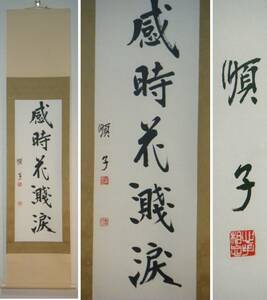 感時花濺淚
順子
感時花濺淚
順子
順子